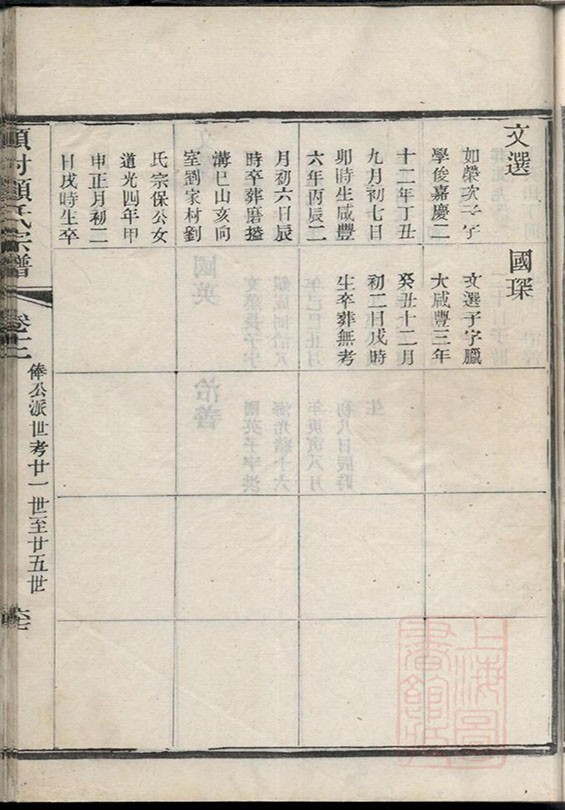 文選
如榮次子字
學俊嘉慶二
十二年丁丑
九月初七日
卯時生咸豐
六年丙辰二
月初六日辰
時卒葬磨搕
溝巳山亥向
室劉家材劉
氏宗保公女
道光四年甲
申正月初二
日戌時生卒
國琛
文選子字臘
大咸豐三年
癸丑十二月
初二日戌時
生卒葬無考
氏宗譜
卷十二
俸公派世考廿一世至廿五世
上海圖
書館藏